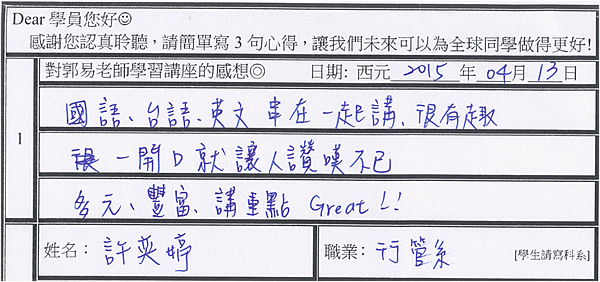 Dear 學員您好☺
感謝您認真聆聽，請簡單寫 3 句心得，讓我們未來可以為全球同學做得更好!
對郭易老師學習講座的感想◎ 日期: 西元 2015 年 04 月 13 日
1
國語、台語、英文 串在一起講、很有趣
一開口就讓人讚嘆不已
多元、豐富、講重點 Great!!
姓名： 許奕婷 職業： 行管系 [學生請寫科系]